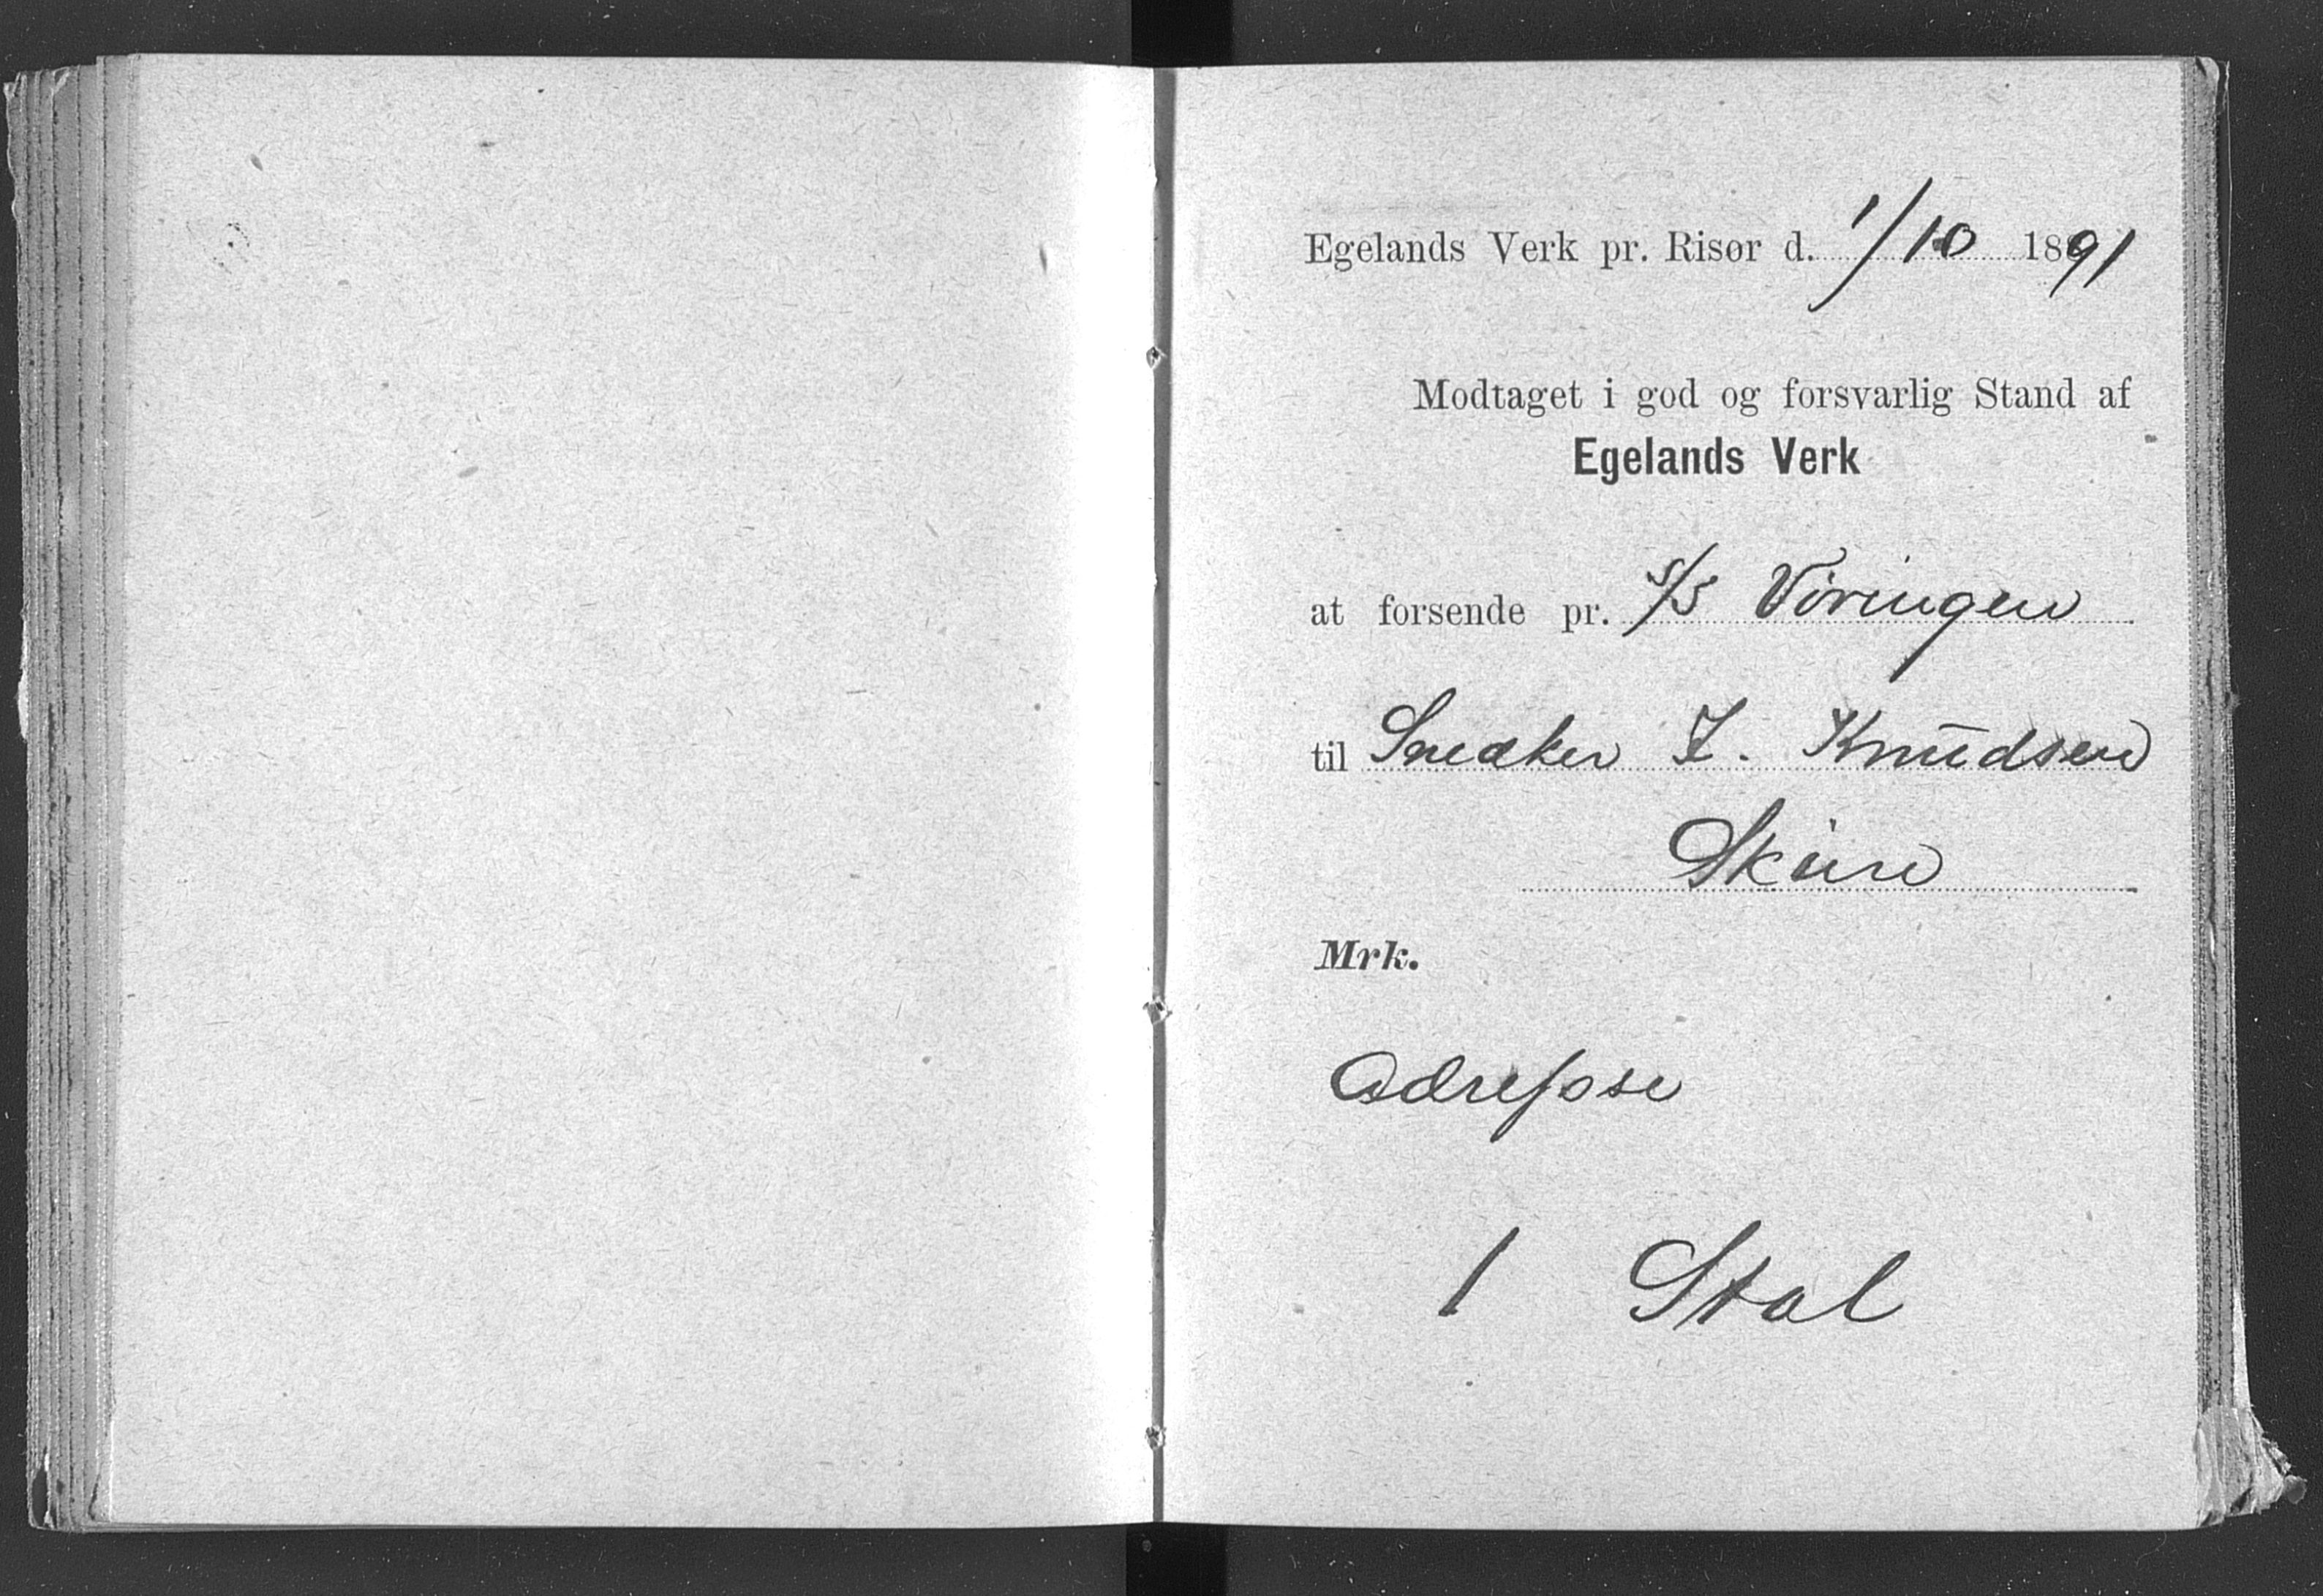 Egelands Verk pr. Risør d. 1/10 1891
Modtaget i god og forsvarlig Stand af
Egelands Verk
at forsende pr. S/S Vøringen
til Snedker I. Knudsen
Mrk.
Adresse
1 Stol